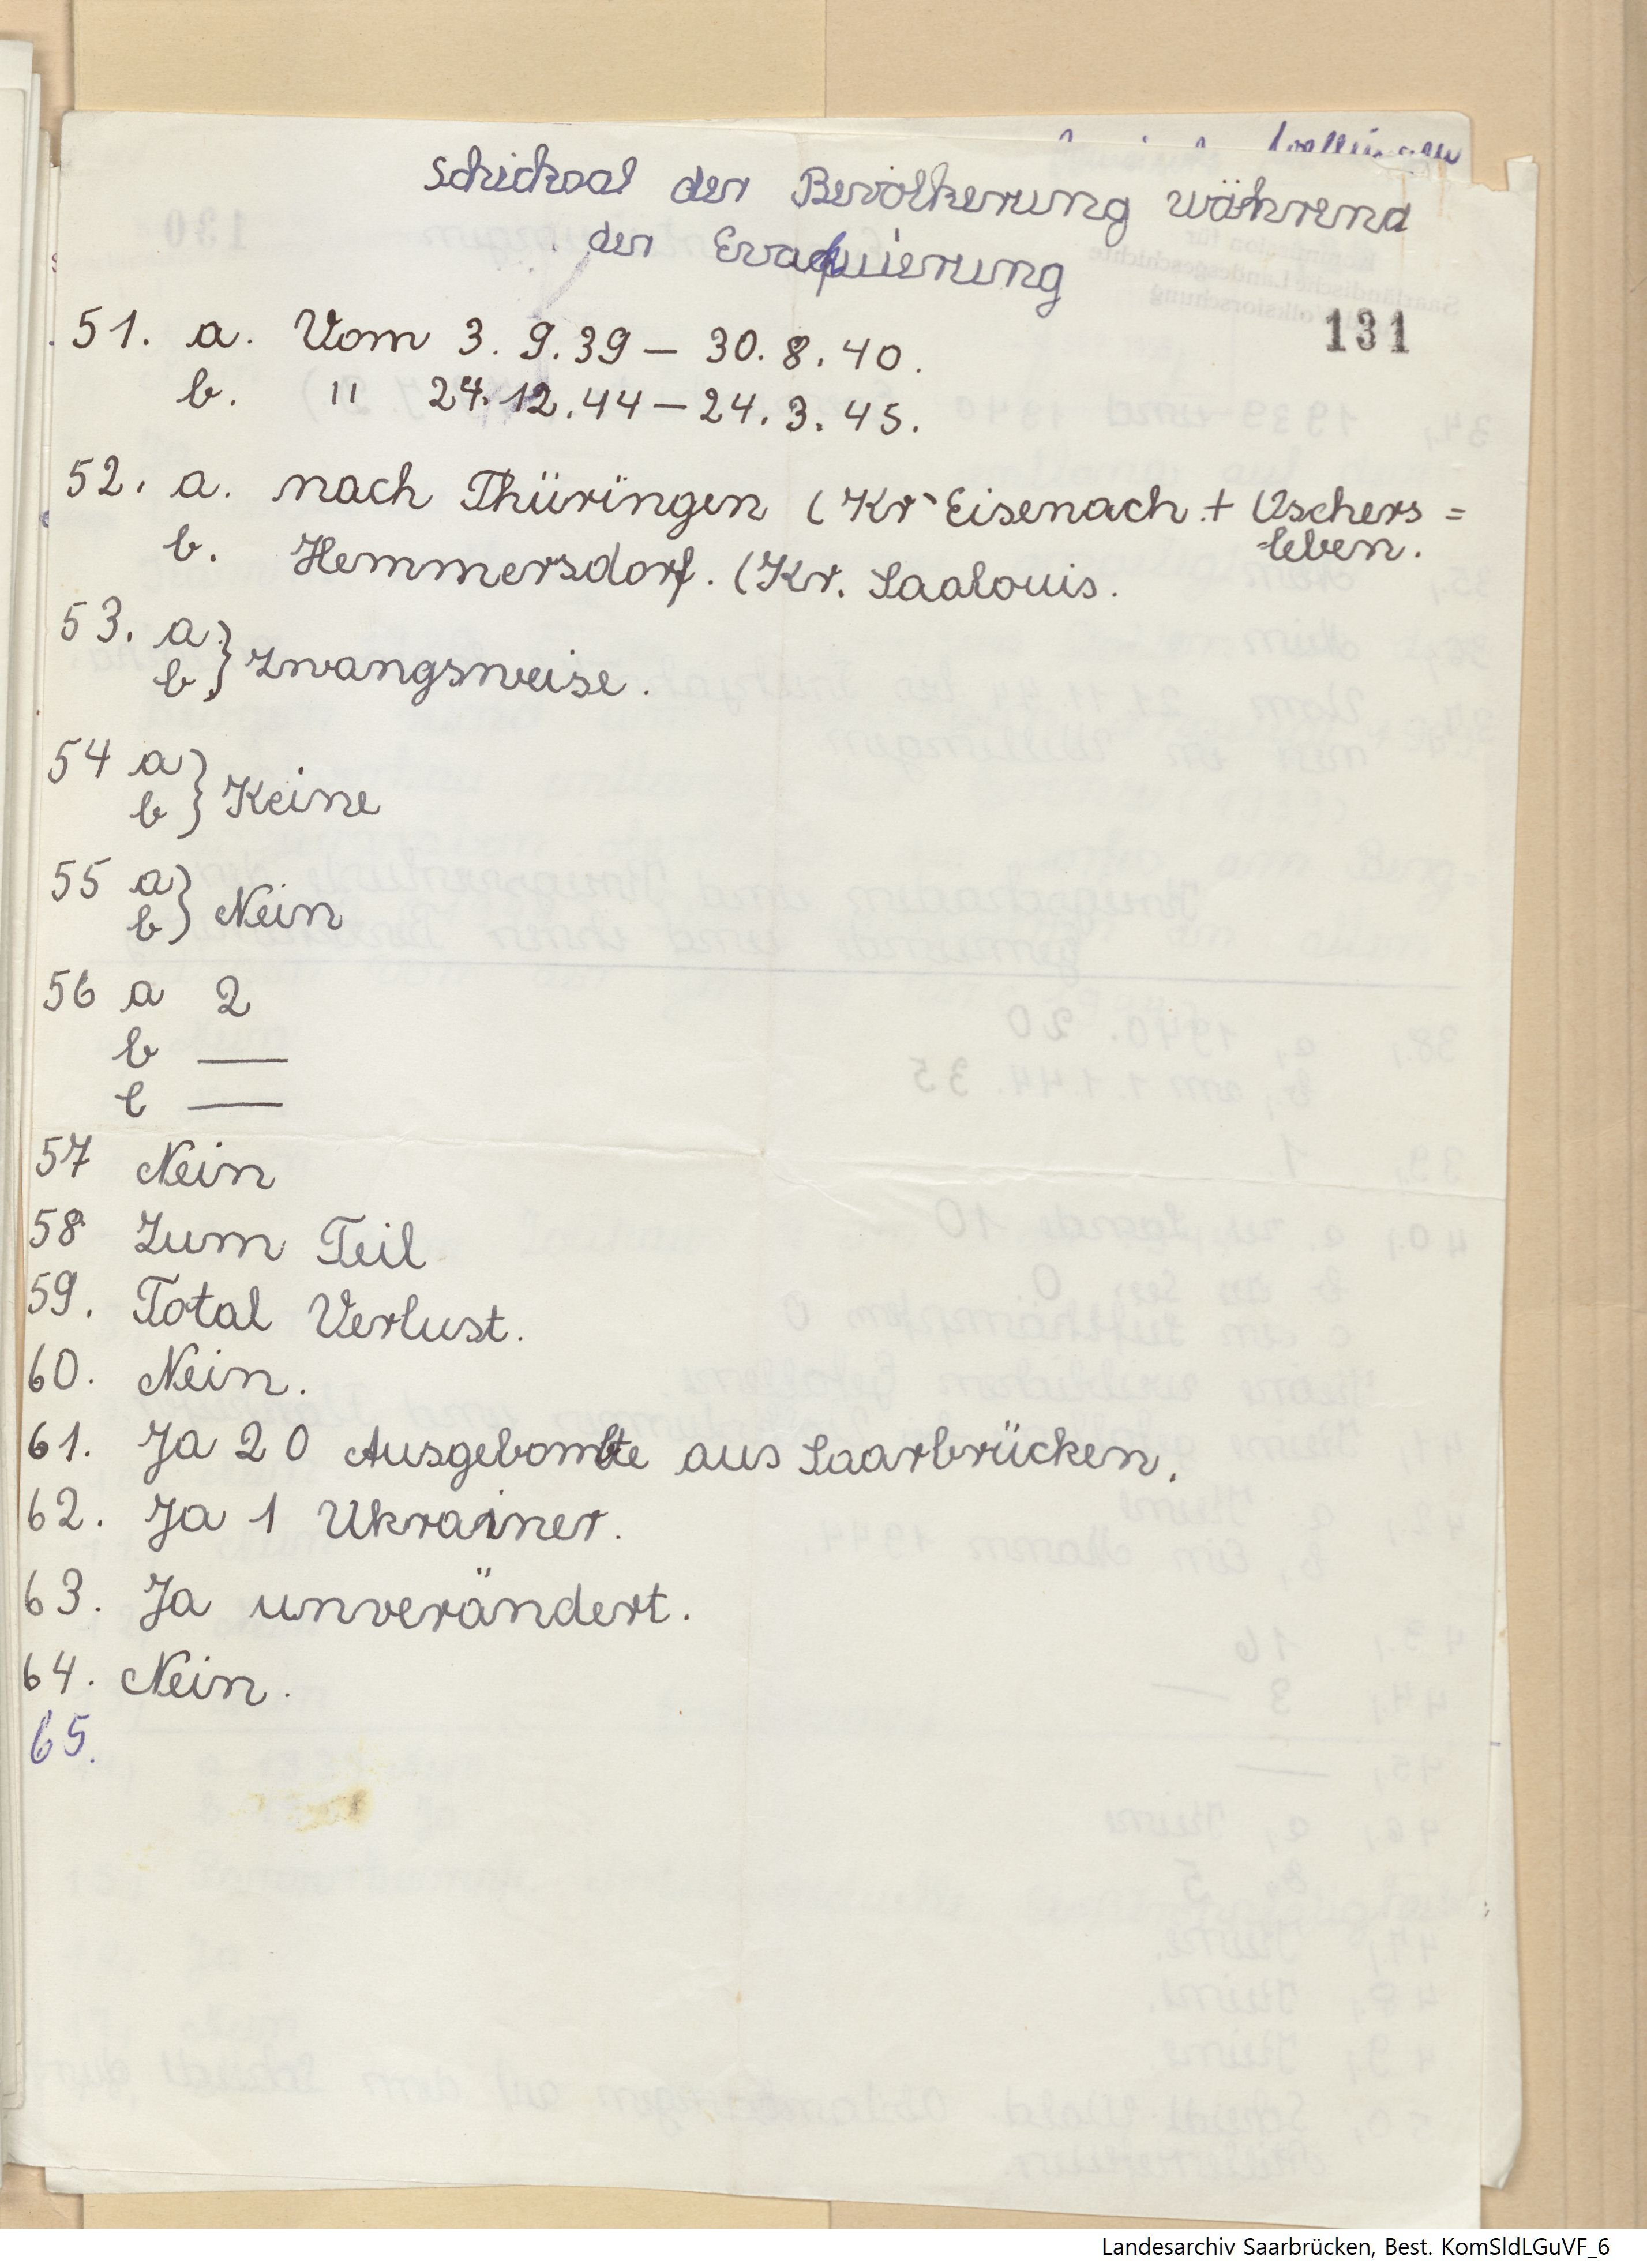 Schicksal der Bevölkerung während
der Evaquierung
131
51. a. Vom 3. 9. 39 – 30. 8. 40.
b. " 24. 12. 44 – 24. 3. 45.
52. a. nach Thüringen (Kr Eisenach + Uschers =
=leben.
b. Hemmersdorf. (Kr. Saalouis.
53. a.
b. } zwangsweise.
54 a
b } Keine
55 a
b } Nein
56 a 2
b —
c —
57 Nein
58 Zum Teil
59. Total Verlust.
60. Nein.
61. Ja 20 Ausgebombte aus Saarbrücken.
62. Ja 1 Ukrainer.
63. Ja unverändert.
64. Nein.
65.
Landesarchiv Saarbrücken, Best. KomSldLGuVF_6